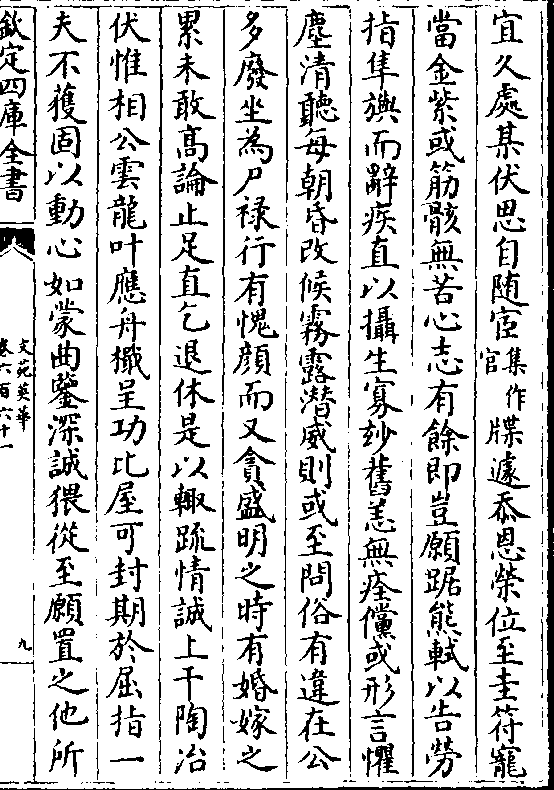 宜久處某伏思自随宦集作官牒遽忝恩榮位至圭符寵
當金紫或筋骸無苦心志有餘即豈願踞熊軾以告勞
指隼旟而辭疾直以攝生寡妙舊恙無痊儻或形言懼
塵清聽每朝昏改候霧露潜威則或至問俗有違在公
多廢坐為尸禄行有愧顔而又貪盛明之時有婚嫁之
累未敢高論止足直乞退休是以輙疏情誠上干陶冶
伏惟相公雲龍叶應舟檝呈功比屋可封期於屈指一
夫不獲固以動心如蒙曲鑒深誠猥從至願置之他所
欽定四庫全書
文苑英華
卷六百六十一
九